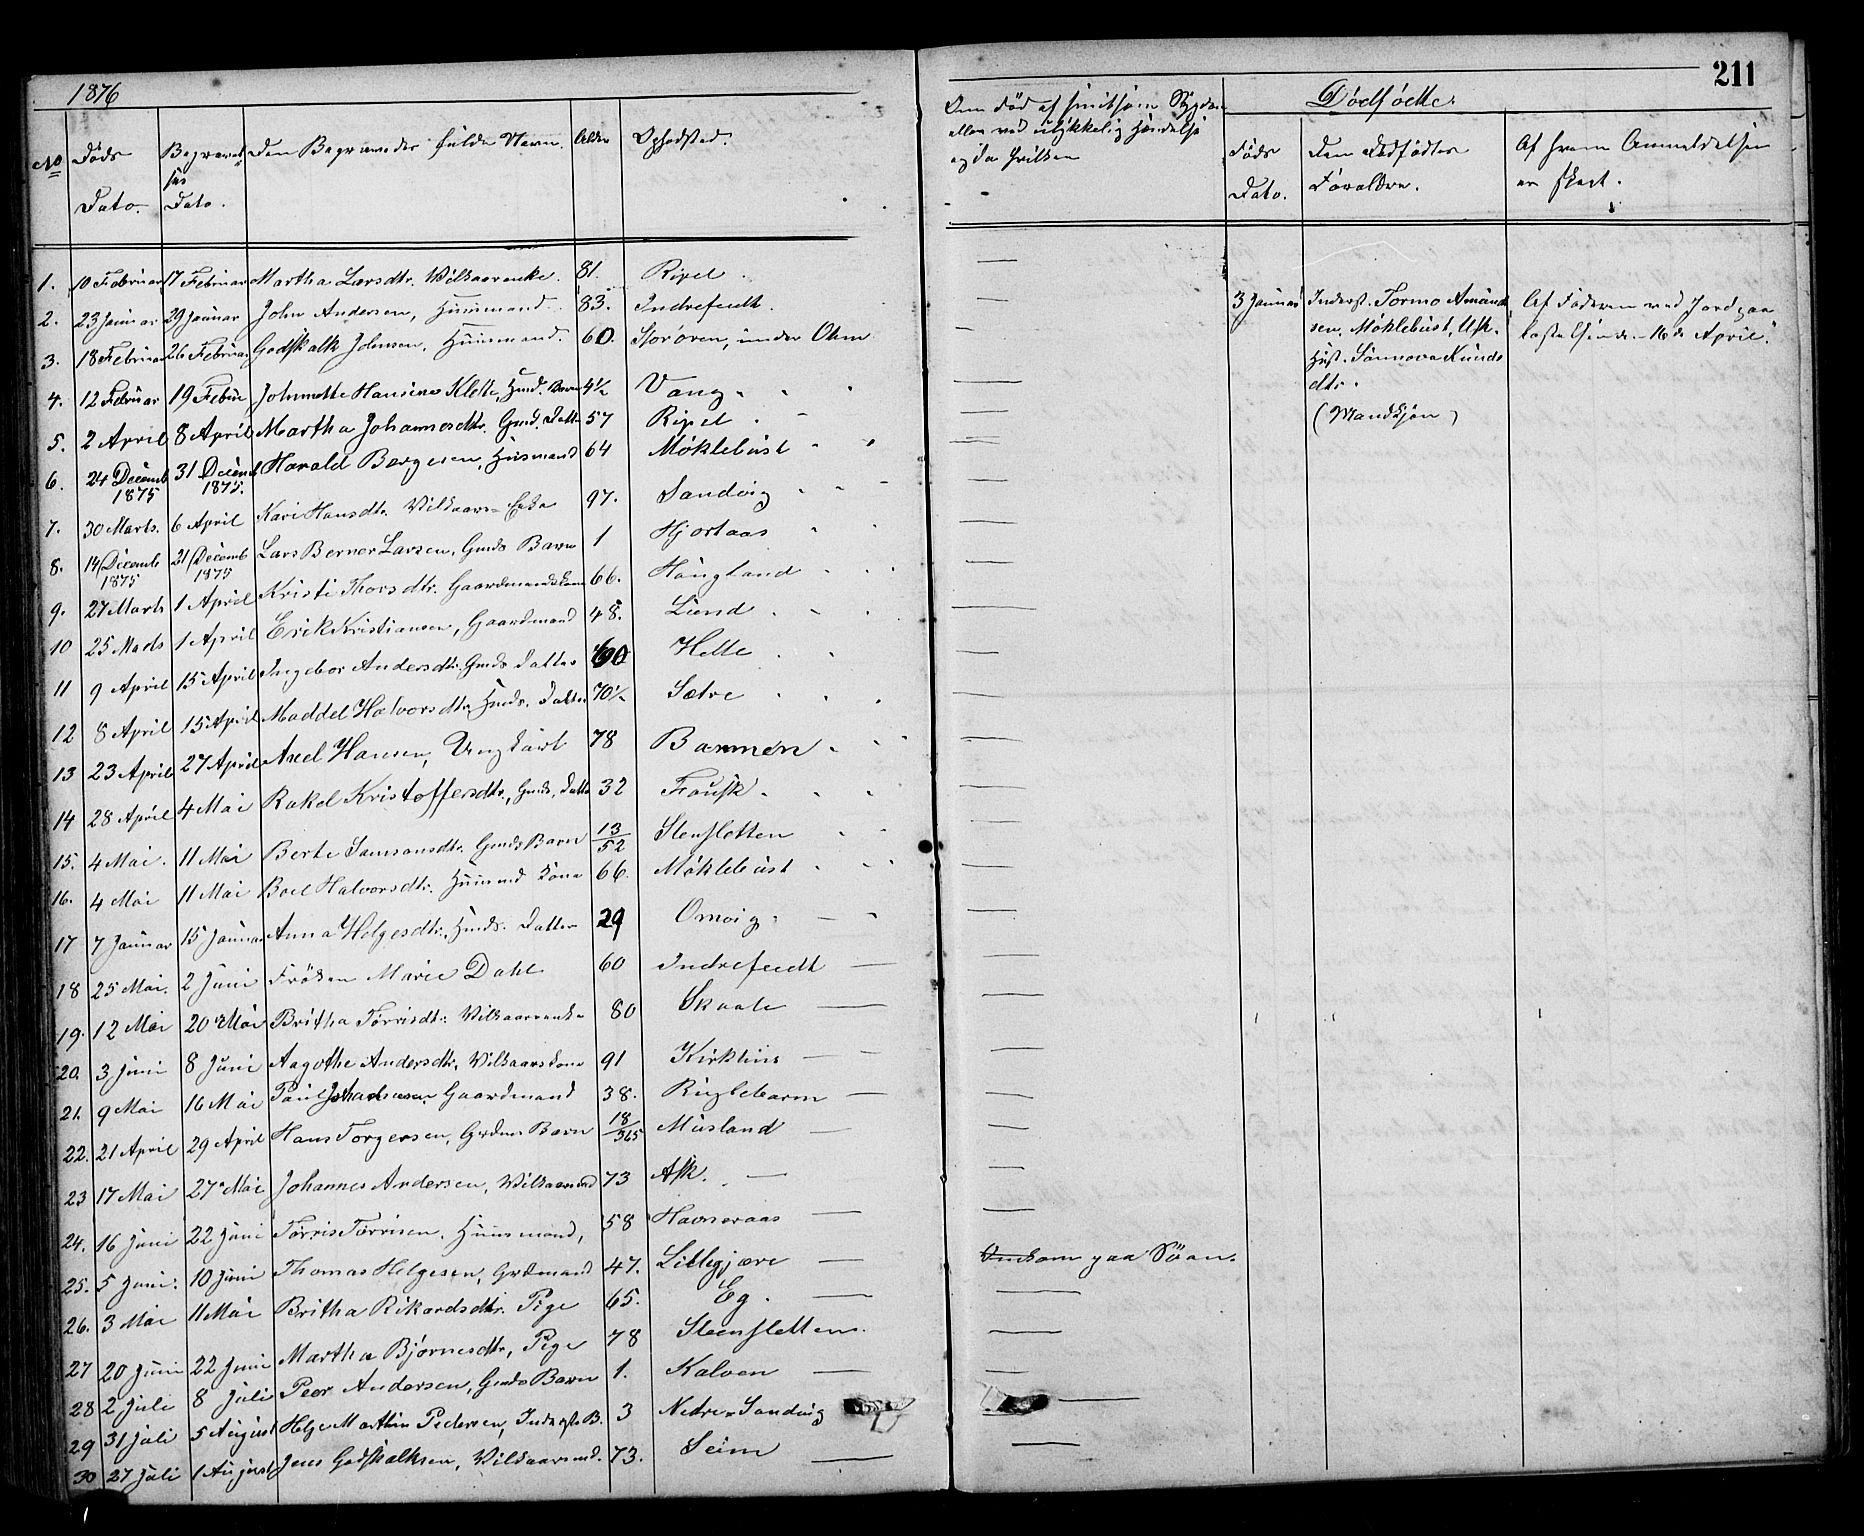 1876
211
No Døds Dato. Begravel- ses Dato. Den Begravedes fulde Navn. Alder Opholdsted.
Om død af smitsom Sygdom
eller ved ulykkelig Hændelse
og da hvilken
Dødfødte.
Døds Dato. Den Dødfødtes Forældre. Af hvem Anmeldelsen er skeet.
1. 10 Februar 17 Februar Martha Larsdtr. Vilkaarenke. 81. Ripel.
2. 23 Januar 29 Januar John Andersen, Huusmand. 83. Indrefeidt.
3. 18 Februar 26 Februar Godskalk Johnsen, Huusmand. 60. Storøren, under Okin
4. 12 Februar 19 Febru Johnette Hansine Klette, Hmd. Barn 4½ Vang
5. 2 April 8 April Martha Johannesdtr. Gmd. Datter 57 Ripel
6. 24 Decemb 1875 31 Decemb 1875. Harald Børgesen, Huusmand 64 Møklebust
7. 30 Marts. 6 April Kari Hansdtr. Vilkaars-Enke 97. Sandvig
8. 14 Decemb 1875 21 Decemb 1875 Lars Berner Larsen, Gmds Barn 1 Hjortaas
9. 27 Marts 1 April Kristi Thorsdtr. Gaardmandskone 66. Haugland
10 25 Marts 1 April Erik Kristiansen, Gaardmand 48. Lund
11 9 April 15 April Ingebor Andersdtr. Gmds Datter 60 Helle
12 8 April 15 April Maddel Halvorsdtr. Hmds. Datter 70½ Sætre
13 23 April 27 April Axel Hansen, Ungkarl 78 Barmen
14 28 April 4 Mai Rakel Kristoffersdtr., Gmds. Datter 32 Fausk
15. 4 Mai. 11 Mai Berte Samsonsdtr. Gmds Barn 13/52 Stensletten
16. 4 Mai 11 Mai Boel Halvorsdtr. Huusmd Kone 66. Møklebust
17 7 Januar 15 Januar Anna Helgesdtr. Hmds. Datter 29 Omvig
18 25 Mai. 2 Juni Frøken Marie Dahl 60 Indrefeidt
19. 12 Mai 20 Mai Britha Tørrisdtr. Vilkaarenke 80 Skaale
20. 3 Juni 8 Juni Aagothe Andersdtr. Vilkaarskone 91 Kirkhus
21. 9 Mai 16 Mai Paul Gaardmand 38. Ruglebarm
22. 21 April 29 April Hans Torgersen, Grdmds Barn 18/365 Musland
23 17 Mai 27 Mai Johannes Andersen, Vilkaarsmd 73 Ask.
24. 16 Juni 22 Juni Tørris Tørrisen. Huusmand, 58 Havneraas
25. 5 Juni. 10 Juni Thomas Helgesen, Grdmand 47. Lillegjære Omkom paa Søen.
26. 3 Mai 11 Mai Britha Rikardsdtr. Pige 65. Eg.
27 20 Juni 22 Juni Martha Bjørnesdtr, Pige 78 Steensletten.
28 2 Juli 8 Juli Peer Andersen, Gmds Barn 1. Kalven
29 31 Juli 5 August Helge Martin Pedersen, Inderste B. 3 Nedre-Sandvig
30 27 Juli 1 August Jens Godskalksen, Vilkaarsmd. 73. Seim
3 Januar Inderst. Tormo Amund-
sen, Møklebust,
Hust. Sønnova Knuds
dtr.
(Mandkjøn)
Af Faderen ved Jordpaa
kastelsen den 16de April.